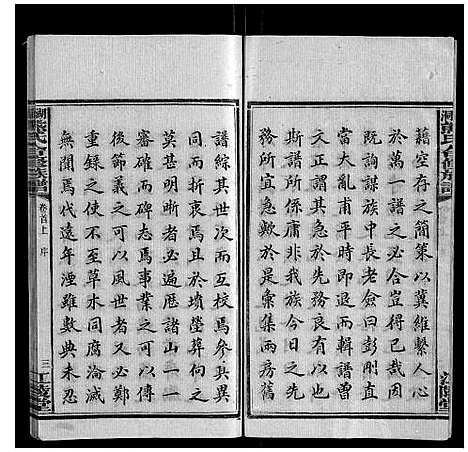 藉空存之簡策以冀維繫人心
於一時譜之必合豈得已哉因
既詢謀族中長老僉曰彭剛直
當大亂甫平時即以輯譜曾
文正謂其為知先務良有以也
斯譜之修庸非我族今日之先
務所宜急於是彙集兩房舊
譜綜其世次而互校焉參其異
同而折衷焉且於墳塋葬向之
莫甚明晰者必遍歷諸山一一
審確而碑志焉事業之可以傳
後節義之可以風世者又必鄭
重錄之使不至草水同腐淪滅
無聞焉代遠年湮雖數典未忍
卷首上 序
三
江陵堂